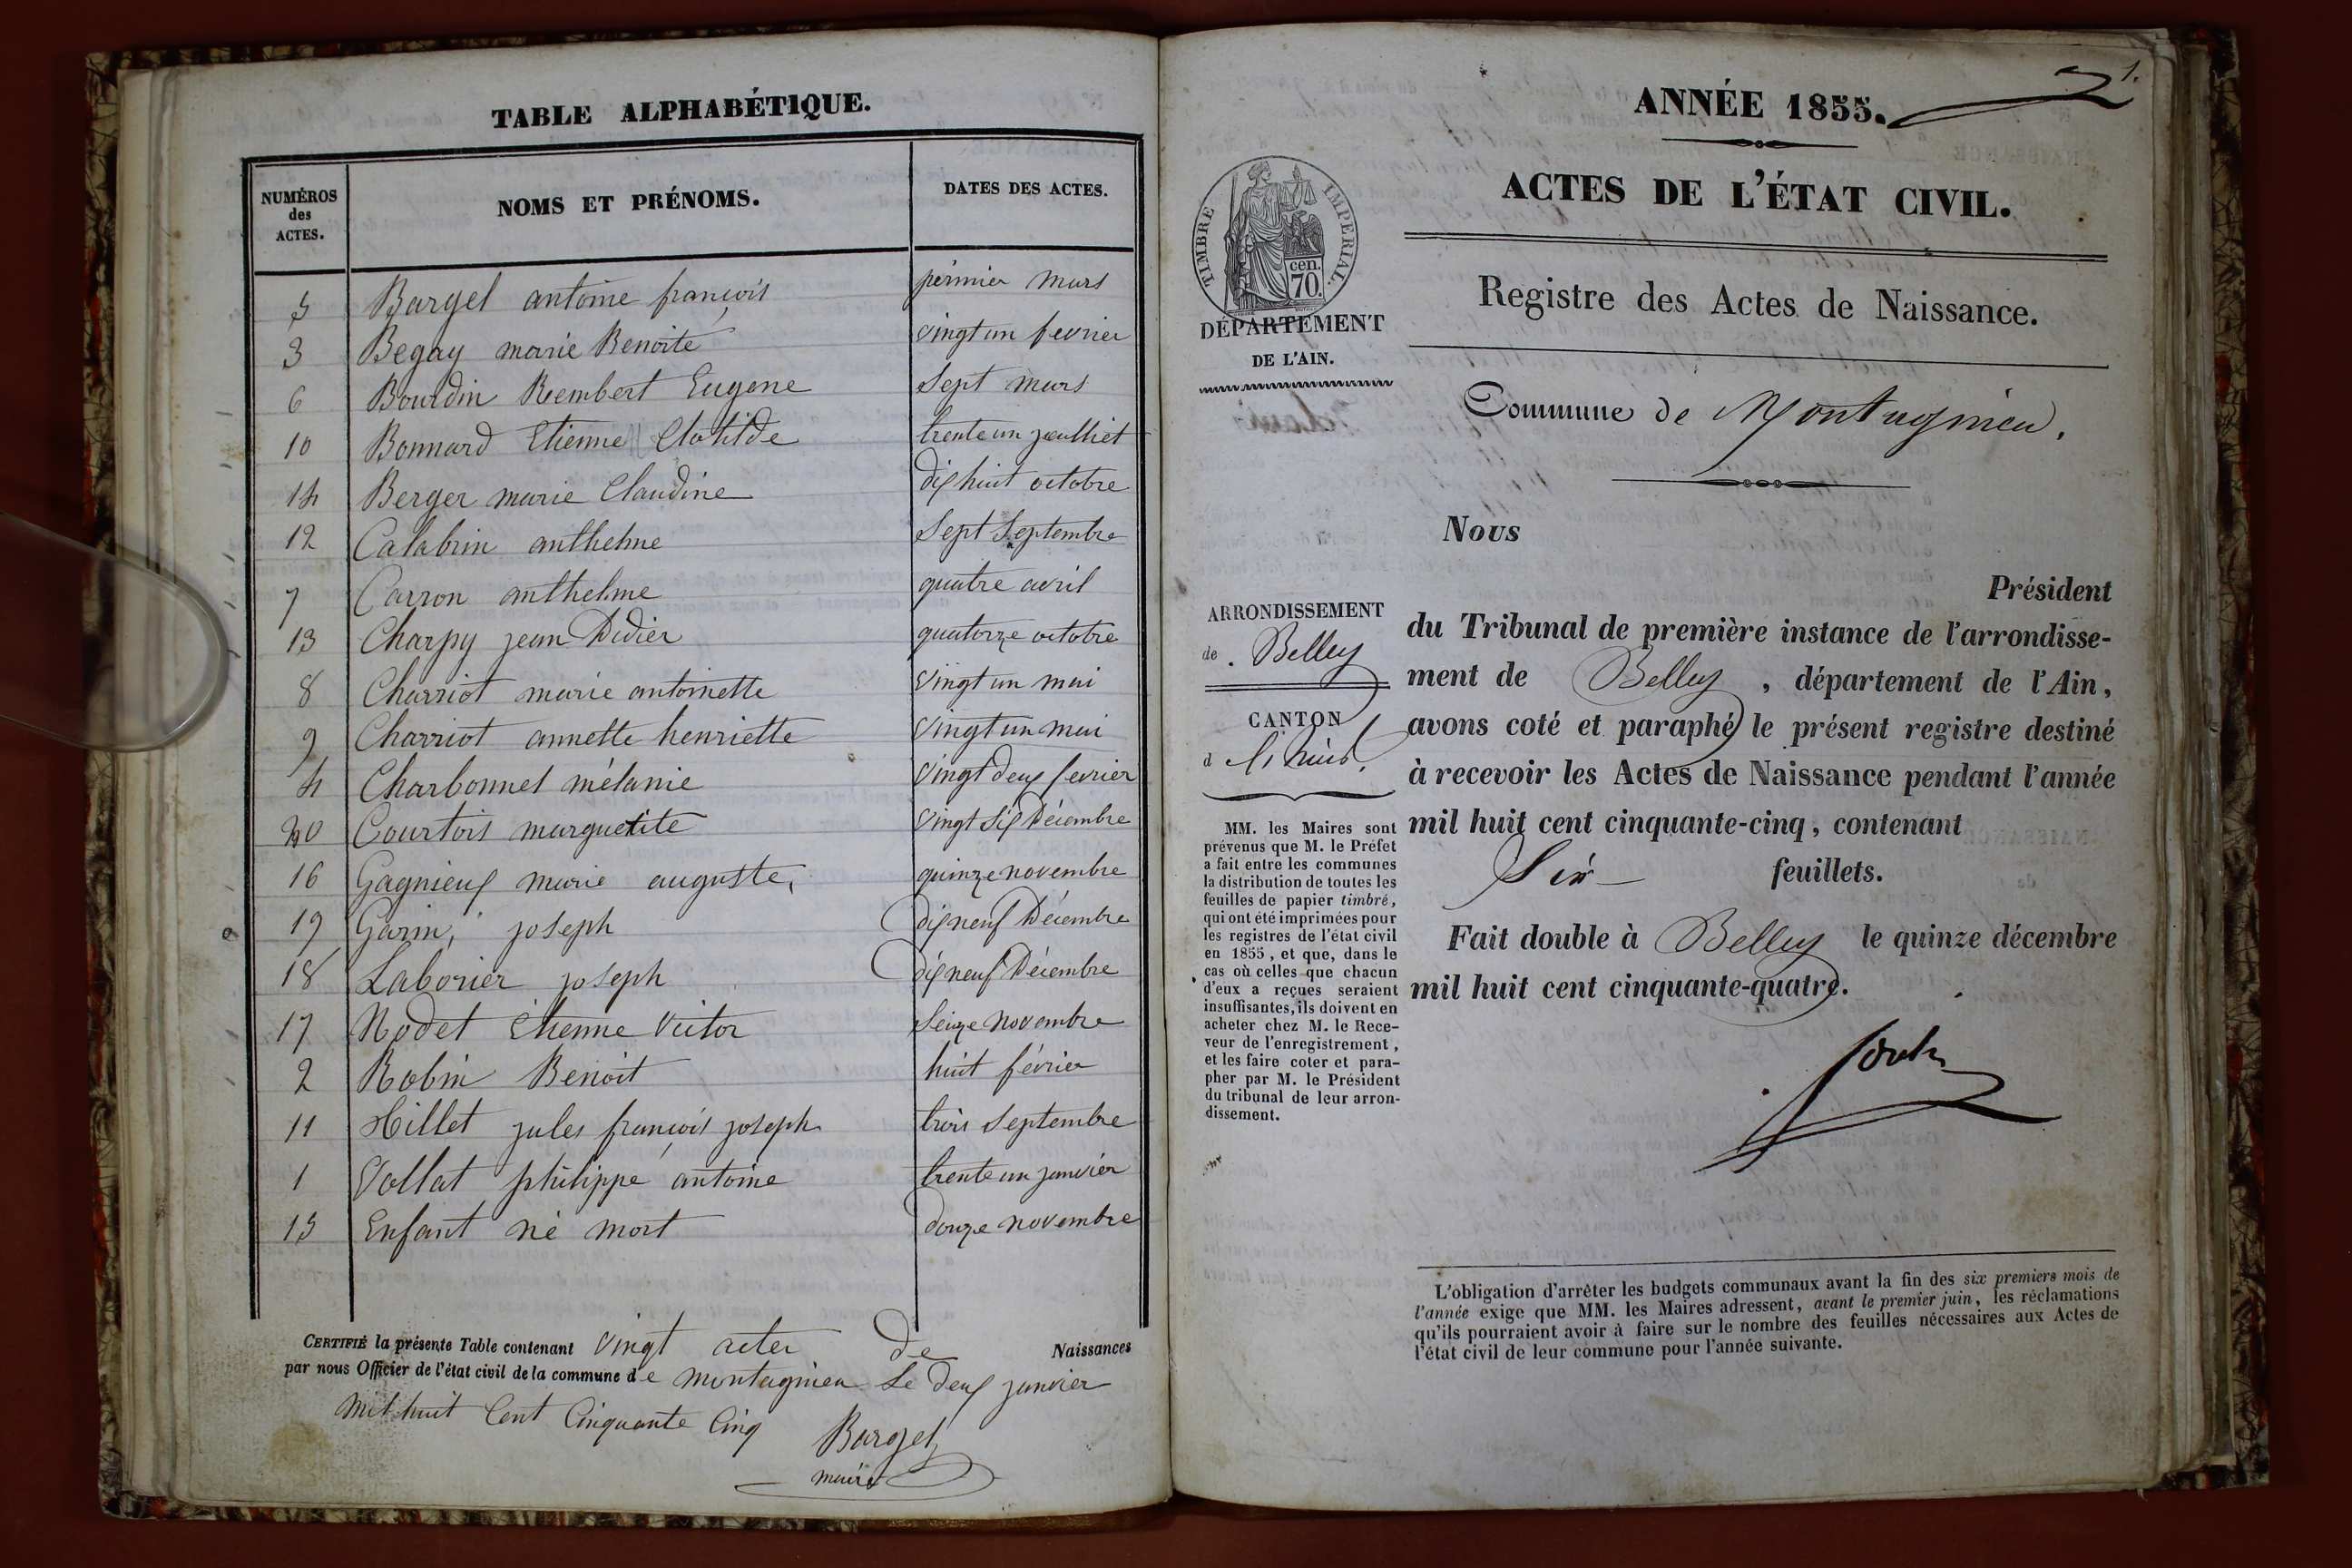 TABLE ALPHABÉTIQUE.
NUMÉROS des ACTES. NOMS ET PRÉNOMS. DATES DES ACTES.
5 Bargel antoine françois permier mars
3 Begay marie Benoite vingt un fevrier
6 Bourdin Rembert Eugene sept mars
10 Bonnard Etienne Clotilde trente un jeulliet
14 Berger marie Claudine dix huit octobre
12 Calabrin anthelme sept Septembre
7 Carron anthelme quatre avril
13 Charpy jean Didier quatorze octobre
8 Charriot marie antoinette vingt un mai
9 Charriot annette henriette vingt un mai
4 Charbonnel mélanie vingt deux fevrier
20 Courtois marguetite vingt six Décembre
16 Gagnieux marie auguste, quinze novembre
19 Garin, joseph dix neuf Décembre
18 Laborier joseph dix neuf Décembre
17 Nodet étienne Victor seize novembre
2 Robin Benoit huit février
11 Millet jules françois joseph trois Septembre
1 Vollat philippe antoine trente un janvier
15 Enfant né mort douze novembre
CERTIFIÉ la présente Table contenant vingt actes de Naissances
par nous Officier de l'état civil de la commune de montagnieu Le deux janvier
mil huit Cent Cinquante Cinq Bargel
maire
1.
ANNÉE 1855.
ACTES DE L'ÉTAT CIVIL.
TIMBRE IMPERIAL.
cen.
70.
DÉPARTEMENT
DE L'AIN.
Registre des Actes de Naissance.
Commune de Montagnieu.
Nous
Président
ARRONDISSEMENT
de Belley
CANTON
d
du Tribunal de première instance de l'arrondisse-
ment de Belley, département de l'Ain,
avons coté et paraphé le présent registre destiné
à recevoir les Actes de Naissance pendant l'année
mil huit cent cinquante-cinq, contenant
Six feuillets.
Fait double à Belley le quinze décembre
mil huit cent cinquante-quatre.
MM. les Maires sont
prévenus que M. le Préfet
a fait entre les communes
la distribution de toutes les
feuilles de papier timbré,
qui ont été imprimées pour
les registres de l'état civil
en 1855, et que, dans le
cas où celles que chacun
d'eux a reçues seraient
insuffisantes, ils doivent en
acheter chez M. le Rece-
veur de l'enregistrement,
et les faire coter et para-
pher par M. le Président
du tribunal de leur arron-
dissement.
L'obligation d'arrêter les budgets communaux avant la fin des six premiers mois de
l'année exige que MM. les Maires adressent, avant le premier juin, les réclamations
qu'ils pourraient avoir à faire sur le nombre des feuilles nécessaires aux Actes de
l'état civil de leur commune pour l'année suivante.